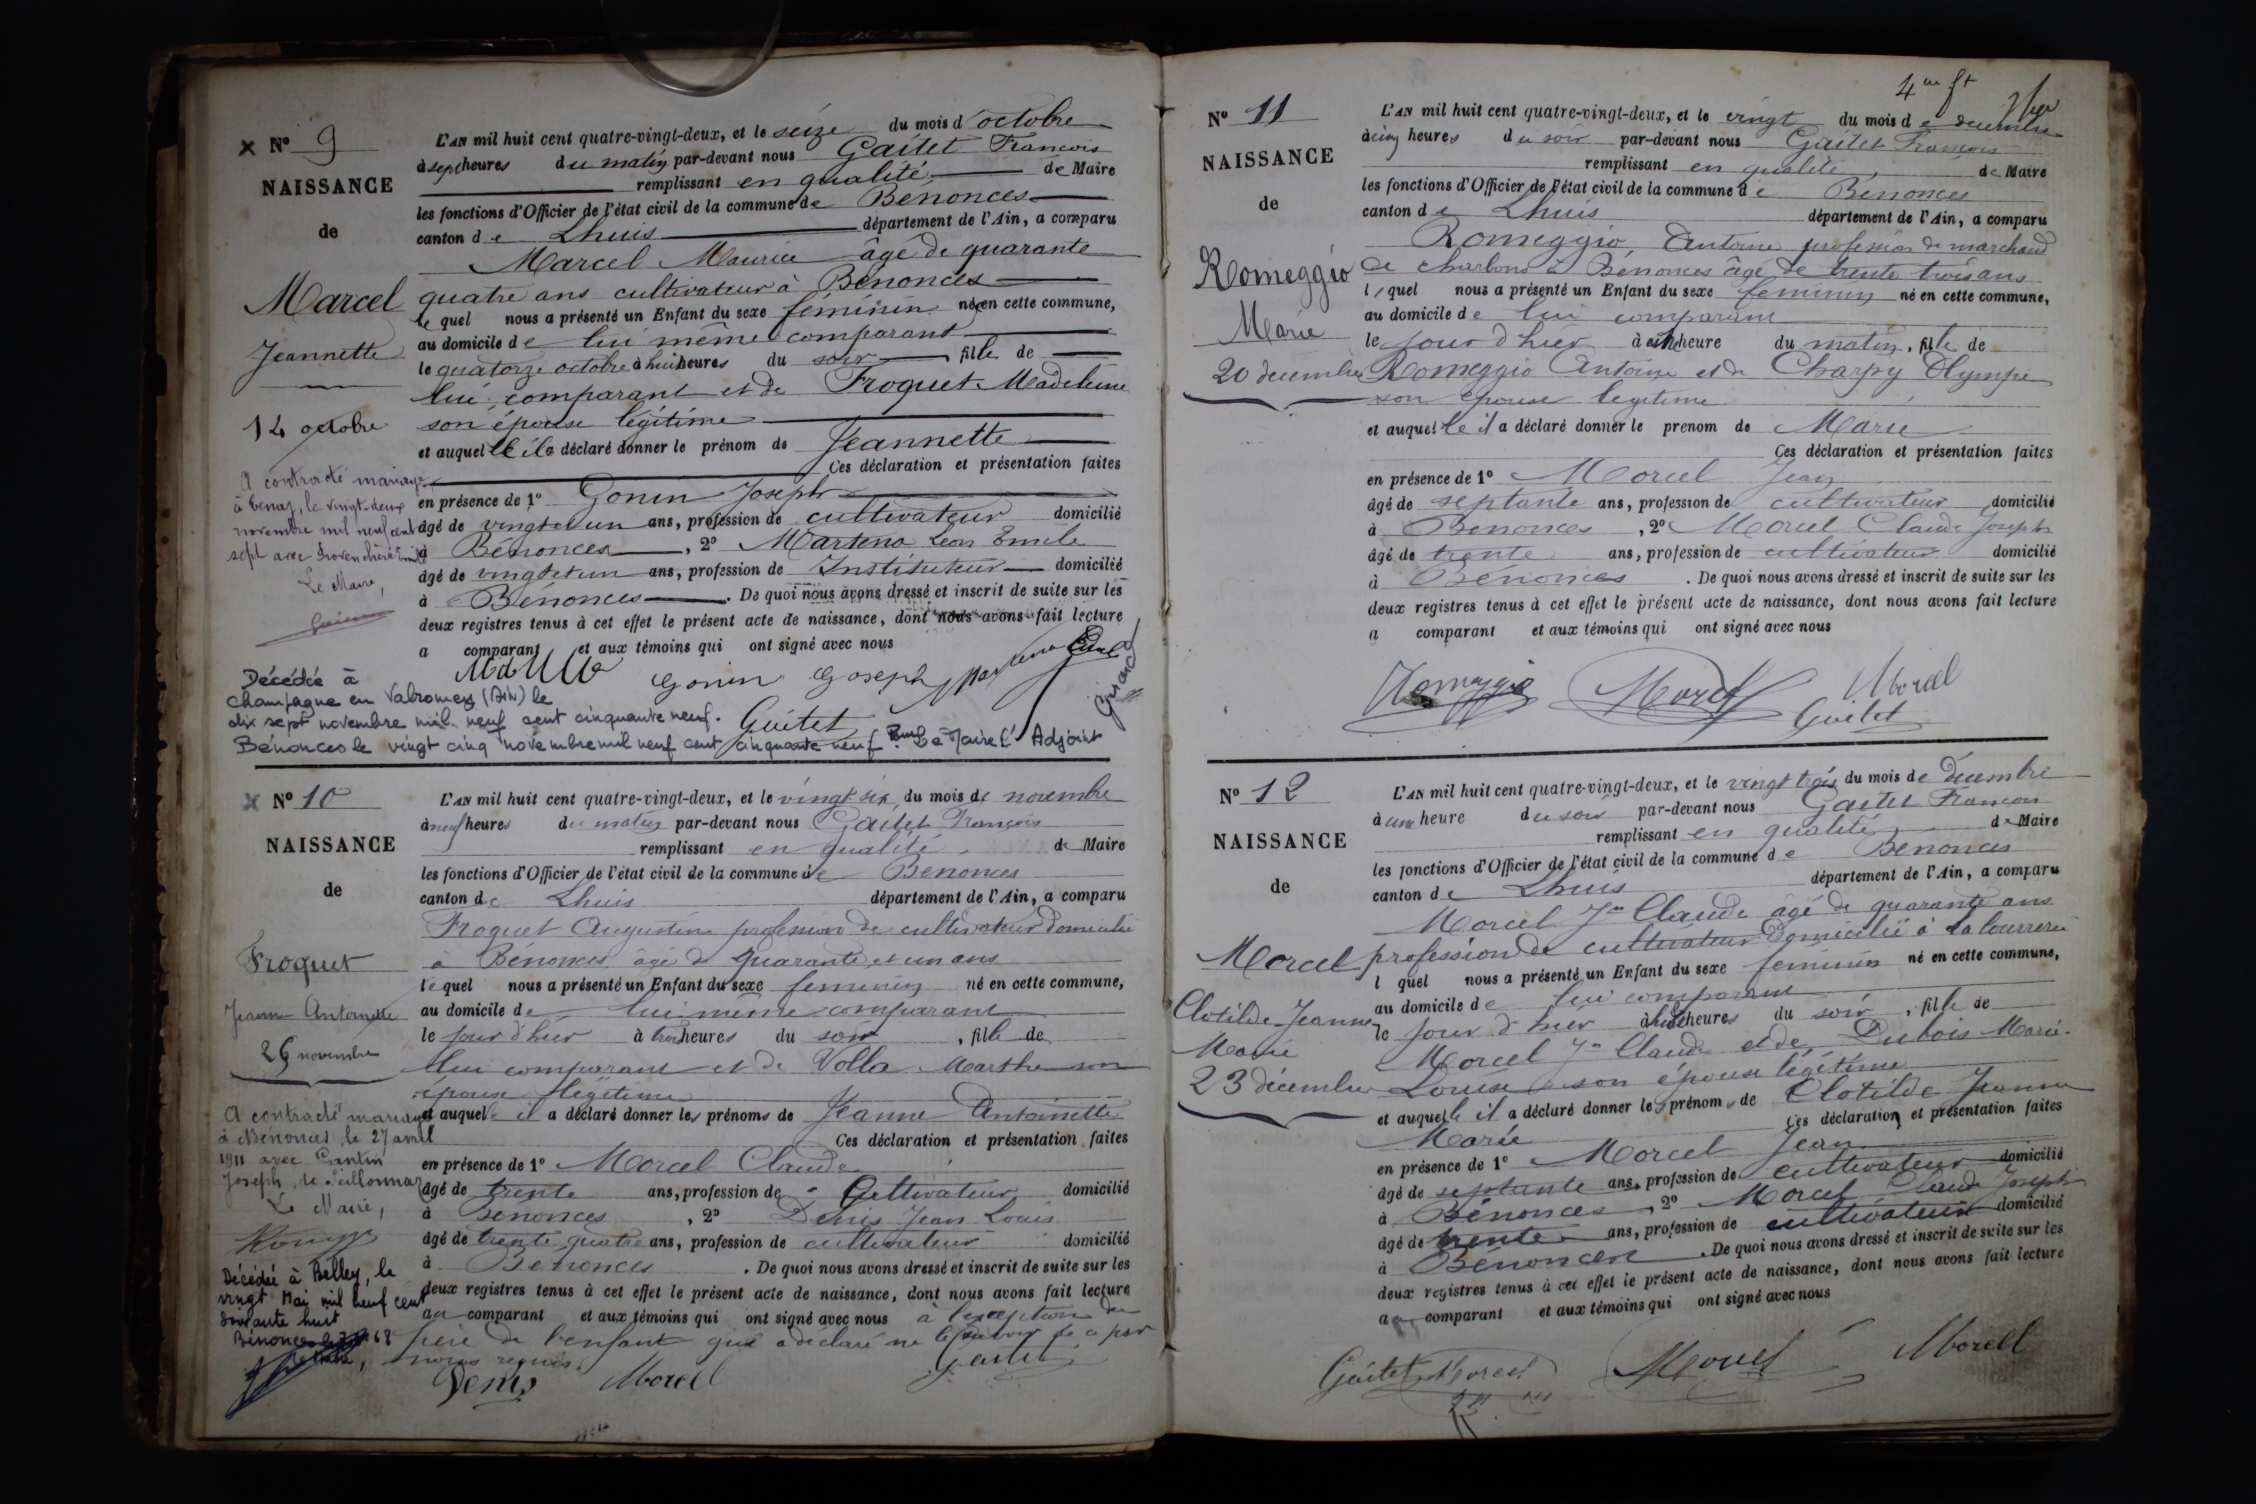 × N° 9
NAISSANCE
de
Marcel
Jeannette
14 octobre
A contracté mariage
à Tenay, le vingt-deux
novembre mil neuf cent
sept avec Émile
Le Maire,
L'AN mil huit cent quatre-vingt-deux, et le seize du mois d'octobre
à sept heures du matin par-devant nous Gaitet François
remplissant en qualité de Maire
les fonctions d'Officier de l'état civil de la commune de Bénonces
canton de Lhuis département de l'Ain, a comparu
Marcel Maurice âgé de quarante
quatre ans cultivateur à Bénonces
le quel nous a présenté un Enfant du sexe féminin né en cette commune,
au domicile de lui même comparant
le quatorze octobre à huit heures du soir, fille de
lui comparant et de Froquet Madeleine
son épouse légitime
et auquelle il a déclaré donner le prénom de Jeannette
Ces déclaration et présentation faites
en présence de 1° Gonin Joseph
âgé de vingt et un ans, profession de cultivateur domicilié
à Bénonces, 2° Marteno Léon Emile
âgé de vingt et un ans, profession de Instituteur domicilié
à Bénonces. De quoi nous avons dressé et inscrit de suite sur les
deux registres tenus à cet effet le présent acte de naissance, dont nous avons fait lecture
a comparant et aux témoins qui ont signé avec nous
Gonin Joseph
Gaitet
Décédée à
Champagne en Valromey (Ain) le
dix sept novembre mil neuf cent cinquante neuf.
Bénonces le vingt cinq novembre mil neuf cent cinquante neuf Pour Le Maire l'Adjoint
Girard
× N° 10
NAISSANCE
de
Froquet
Jeanne Antoinette
26 novembre
A contracté mariage
à Bénonces, le 27 avril
1911 avec Cantin
Joseph, de Seillonnaz
Le Maire,
Décédée à Belley, le
vingt Mai mil neuf cent
soixante huit
L'AN mil huit cent quatre-vingt-deux, et le vingt six du mois de novembre
à neuf heures du matin par-devant nous Gaitet François
remplissant en qualité de Maire
les fonctions d'Officier de l'état civil de la commune de Bénonces
canton de Lhuis département de l'Ain, a comparu
Froquet Augustin profession de cultivateur domicilié
à Bénonces âgé de quarante et un ans
lequel nous a présenté un Enfant du sexe féminin né en cette commune,
au domicile de lui même comparant
le jour d'hier à trois heures du soir, fille de
lui comparant et de Volla Marthe son
épouse légitime
et auquelle il a déclaré donner les prénoms de Jeanne Antoinette
Ces déclaration et présentation faites
en présence de 1° Morcel Claude
âgé de trente ans, profession de Cultivateur domicilié
à Bénonces, 2° Denis Jean Louis
âgé de trente quatre ans, profession de cultivateur domicilié
à Bénonces. De quoi nous avons dressé et inscrit de suite sur les
deux registres tenus à cet effet le présent acte de naissance, dont nous avons fait lecture
au comparant et aux témoins qui ont signé avec nous à l'exception du
père de l'enfant qui a déclaré ne le savoir de ce par
nous requis.
Denis Morcel Gaitet
N° 11
NAISSANCE
de
Romeggio
Marie
20 décembre
L'AN mil huit cent quatre-vingt-deux, et le vingt du mois de décembre
à cinq heures du soir par-devant nous Gaitet François
remplissant en qualité, de Maire
les fonctions d'Officier de l'état civil de la commune de Bénonces
canton de Lhuis département de l'Ain, a comparu
Romeggio Antoine profession de marchand
de charbons à Bénonces âgé de trente trois ans
lequel nous a présenté un Enfant du sexe féminin né en cette commune,
au domicile de lui comparant
le jour d'hier à heure du matin, fille de
Romeggio Antoine et de Charpy Olympe
son épouse légitime
et auquelle il a déclaré donner le prenom de Marie
Ces déclaration et présentation faites
en présence de 1° Morcel Jean
âgé de septante ans, profession de cultivateur domicilié
à Bénonces, 2° Morcel Claude Joseph
âgé de trente ans, profession de cultivateur domicilié
à Bénonces. De quoi nous avons dressé et inscrit de suite sur les
deux registres tenus à cet effet le présent acte de naissance, dont nous avons fait lecture
a comparant et aux témoins qui ont signé avec nous
Romeggio Morcel Morcel
Gaitet
N° 12
NAISSANCE
de
Morcel
Clotilde Jeanne
Marie
23 décembre
L'AN mil huit cent quatre-vingt-deux, et le vingt trois du mois de décembre
à une heure du soir par-devant nous Gaitet François
remplissant en qualité de Maire
les fonctions d'Officier de l'état civil de la commune de Bénonces
canton de Lhuis département de l'Ain, a comparu
Morcel Jn Claude âgé de quarante ans
profession de cultivateur domicilié à la
l quel nous a présenté un Enfant du sexe féminin né en cette commune,
au domicile de lui comparant
le jour d'hier à huit heures du soir, fille de
Morcel Jn Claude et de Dubois Marie
Louise son épouse légitime
et auquelle il a déclaré donner les prénoms de Clotilde Jeanne
Marie Ces déclaration et présentation faites
en présence de 1° Morcel Jean
âgé de septante ans, profession de cultivateur domicilié
à Bénonces, 2° Morcel Claude Joseph
âgé de trente ans, profession de cultivateur domicilié
à Bénonces. De quoi nous avons dressé et inscrit de suite sur les
deux registres tenus à cet effet le présent acte de naissance, dont nous avons fait lecture
au comparant et aux témoins qui ont signé avec nous
Gaitet Morcel Morcel Morcel